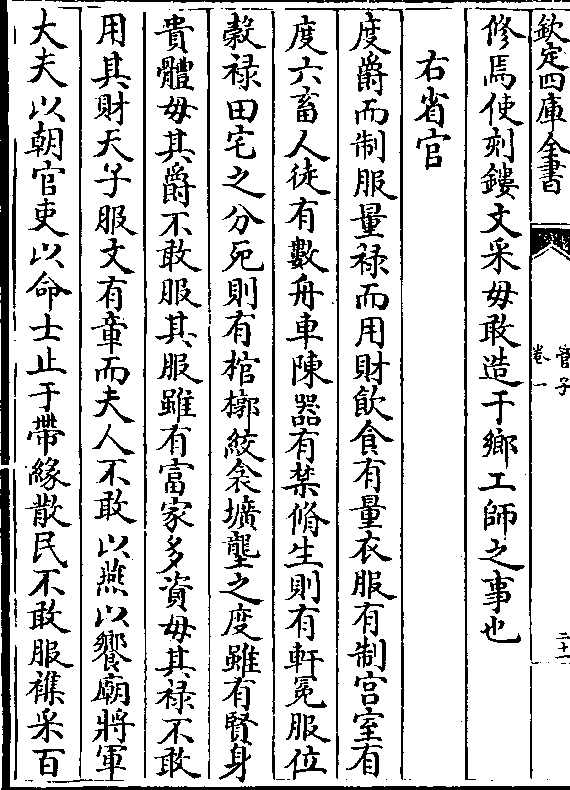 欽定四庫全書
管子
卷一
二十一
修焉使刻鏤文采毋敢造于鄉工師之事也
右省官
度爵而制服量祿而用財飲食有量衣服有制宫室有
度六畜人徒有數舟車陳器有禁脩生則有軒冕服位
榖祿田宅之分死則有棺槨絞衾壙壟之度雖有賢身
貴體毋其爵不敢服其服雖有富家多資毋其祿不敢
用其財天子服文有章而夫人不敢以燕以饗廟將軍
大夫以朝官吏以命士止于帶緣散民不敢服襍采百